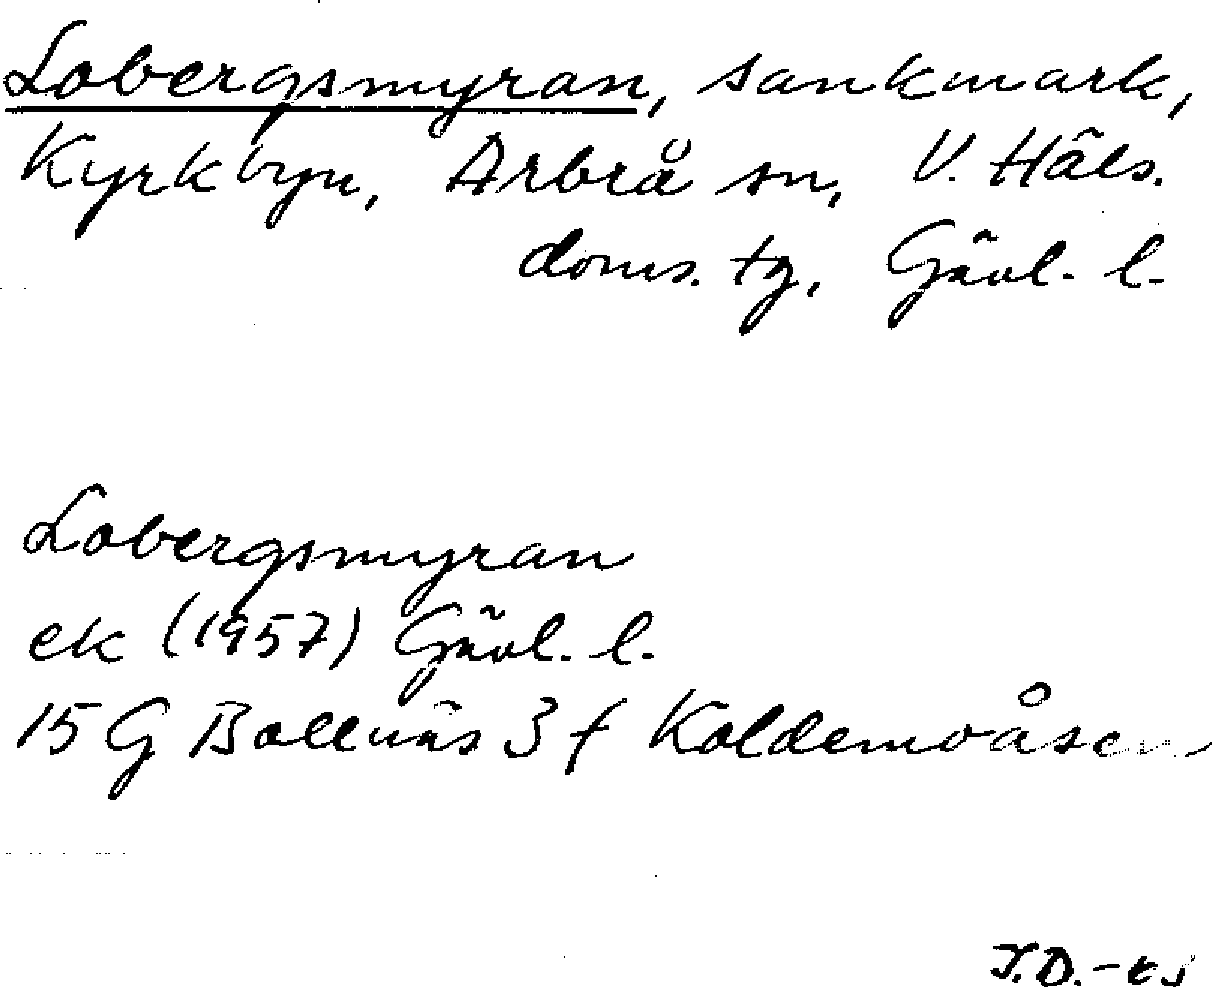 Lobergsmyran, sankmark,
Kyrkbyn, Arbrå sn, V. Häls.
doms. tg, Gävl. l.
Lobergsmyran
ek (1957) Gävl. l.
15 G Bollnäs 3 f Koldemoåsen